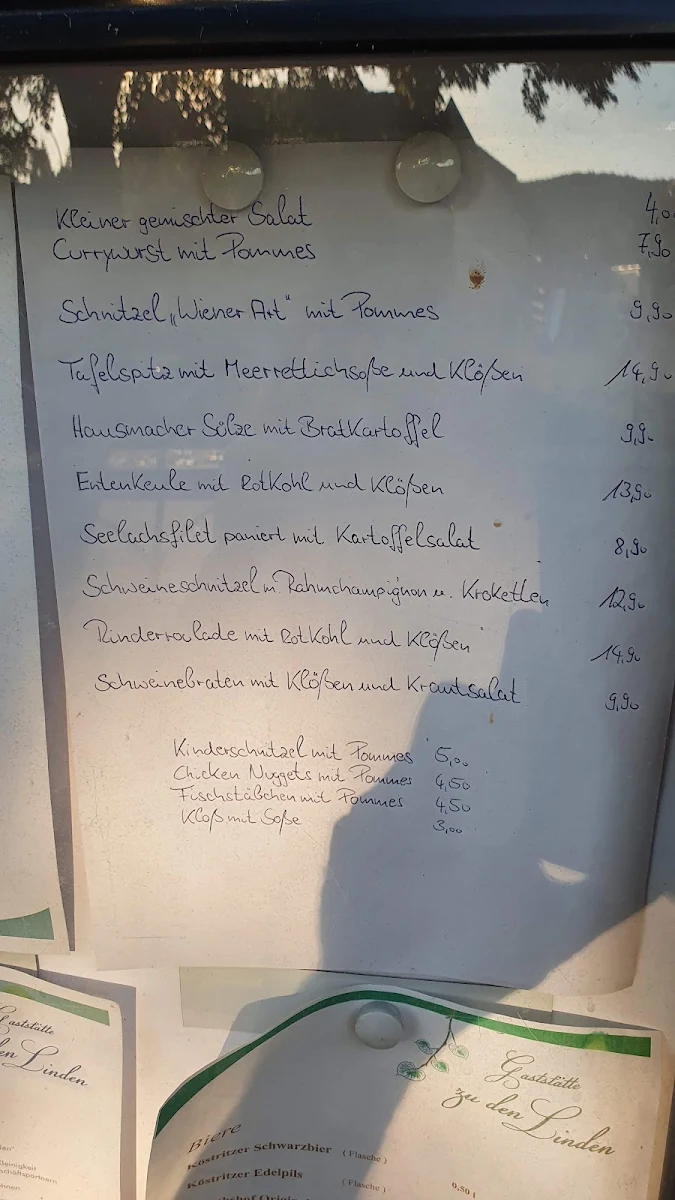 Kleiner gemischter Salat 4,0
Currywurst mit Pommes 7,90
Schnitzel „Wiener Art“ mit Pommes 9,90
Tafelspitz mit Meerrettichsoße und Klößen 14,90
Hausmacher Sülze mit Bratkartoffel 9,90
Entenkeule mit Rotkohl und Klößen 13,90
Seelachsfilet paniert mit Kartoffelsalat 8,90
Schweineschnitzel m. Rahmchampignon u. Kroketten 12,90
Rinderroulade mit Rotkohl und Klößen 14,90
Schweinebraten mit Klößen und Krautsalat 9,90
Kinderschnitzel mit Pommes 5,00
Chicken Nuggets mit Pommes 4,50
Fischstäbchen mit Pommes 4,50
Kloß mit Soße 3,00
Gaststätte
en Linden
leinigkeit
schäftspartnern
Gaststätte
zu den Linden
Biere
Köstritzer Schwarzbier (Flasche)
Köstritzer Edelpils (Flasche) 0,50 l